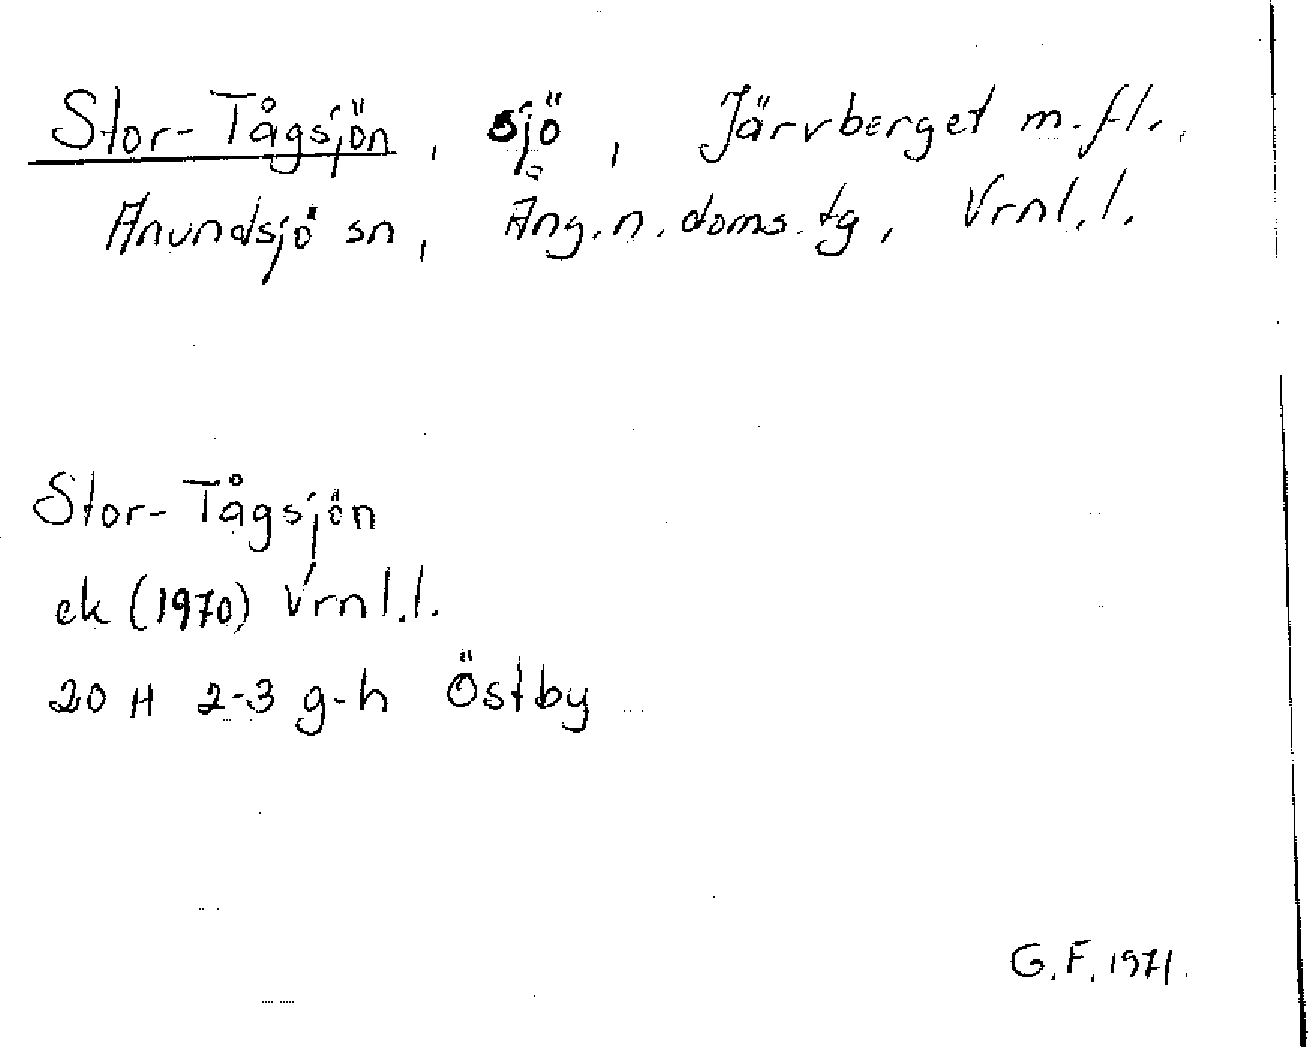 Stor-Tågsjön, sjö, Järvberget m.fl.,
Anundsjö sn, Ång.n.doms.tg, Vrnl.l.
Stor-Tågsjön
ek (1970) Vrnl.l.
20 H 2-3 g-h Östby
G.F. 1971.